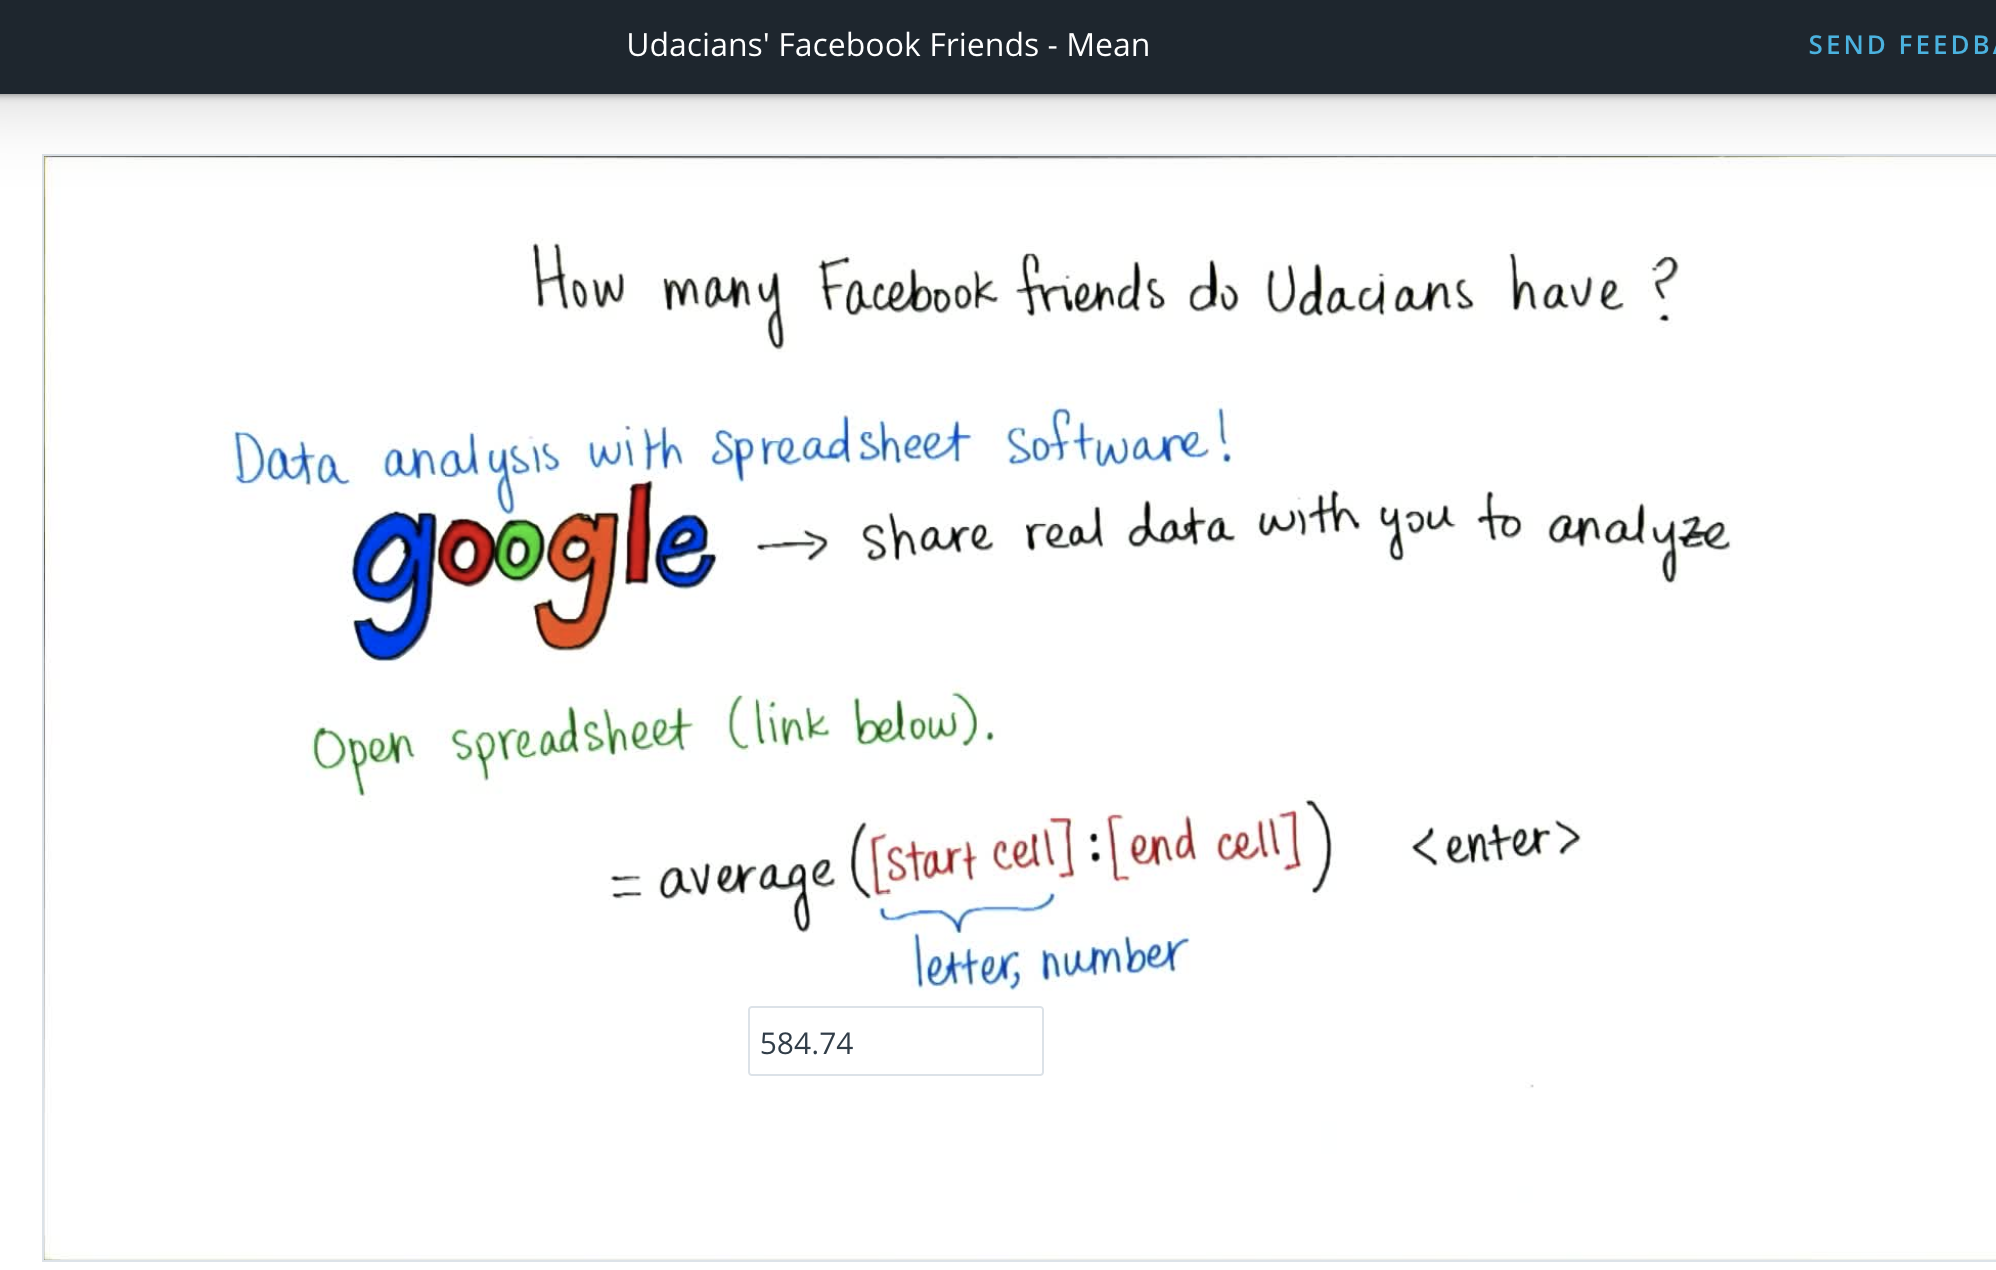 Udacians' Facebook Friends - Mean
SEND FEEDBA
How many Facebook friends do Udacians have?
Data analysis with spreadsheet software!
google → share real data with you to analyze
Open spreadsheet (link below).
= average ([start cell]:[end cell]) <enter>
letter, number
584.74